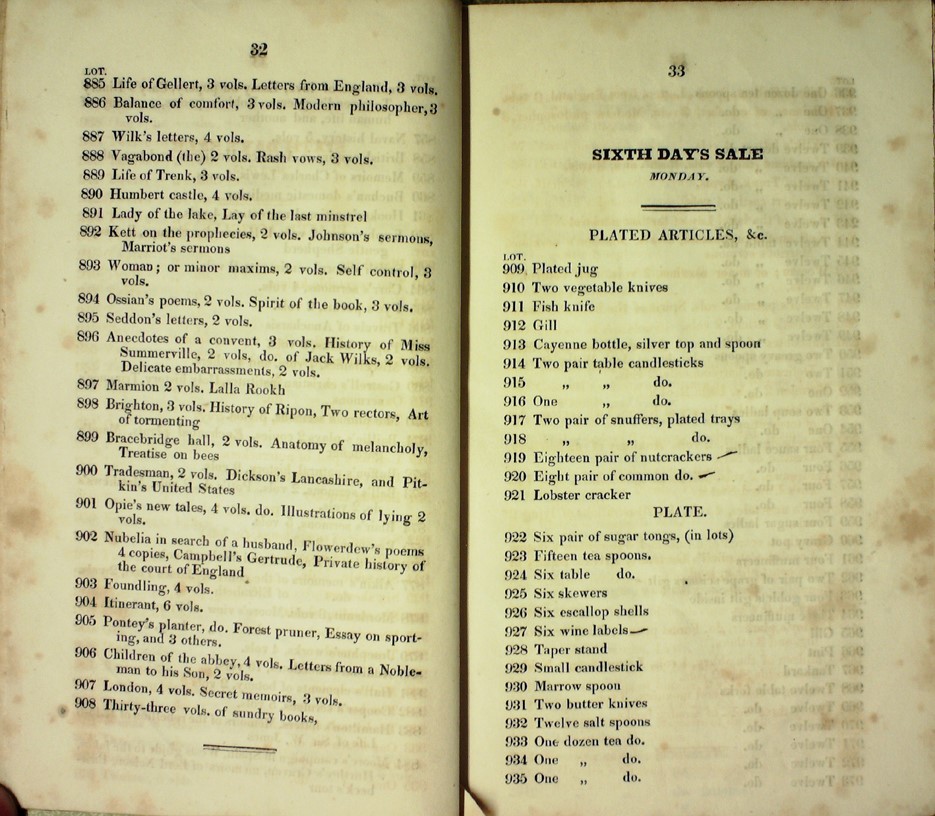 32
LOT.
885 Life of Gellert, 3 vols. Letters from England, 3 vols.
886 Balance of comfort, 3 vols. Modern philosopher, 3
vols.
887 Wilk's letters, 4 vols.
888 Vagabond (the) 2 vols. Rash vows, 3 vols.
889 Life of Trenk, 3 vols.
890 Humbert castle, 4 vols.
891 Lady of the lake, Lay of the last minstrel
892 Kett on the prophecies, 2 vols. Johnson's sermons,
Marriot's sermons
893 Woman; or minor maxims, 2 vols. Self control, 3
vols.
894 Ossian's poems, 2 vols. Spirit of the book, 3 vols.
895 Seddon's letters, 2 vols.
896 Anecdotes of a convent, 3 vols. History of Miss
Summerville, 2 vols, do. of Jack Wilks, 2 vols.
Delicate embarrassments, 2 vols.
897 Marmion 2 vols. Lalla Rookh
898 Brighton, 3 vols. History of Ripon, Two rectors, Art
of tormenting
899 Bracebridge hall, 2 vols. Anatomy of melancholy,
Treatise on bees
900 Tradesman, 2 vols. Dickson's Lancashire, and Pit-
kin's United States
901 Opie's new tales, 4 vols. do. Illustrations of lying 2
vols.
902 Nubelia in search of a husband, Flowerdew's poems
4 copies, Campbell's Gertrude, Private history of
the court of England
903 Foundling, 4 vols.
904 Itinerant, 6 vols.
905 Pontey's planter, do. Forest pruner, Essay on sport-
ing, and 3 others.
906 Children of the abbey, 4 vols. Letters from a Noble-
man to his Son, 2 vols.
907 London, 4 vols. Secret memoirs, 3 vols.
908 Thirty-three vols. of sundry books,
33
SIXTH DAY'S SALE
MONDAY.
PLATED ARTICLES, &c.
LOT.
909 Plated jug
910 Two vegetable knives
911 Fish knife
912 Gill
913 Cayenne bottle, silver top and spoon
914 Two pair table candlesticks
915 „ „ do.
916 One „ do.
917 Two pair of snuffers, plated trays
918 „ „ do.
919 Eighteen pair of nutcrackers
920 Eight pair of common do.
921 Lobster cracker
PLATE.
922 Six pair of sugar tongs, (in lots)
923 Fifteen tea spoons.
924 Six table do.
925 Six skewers
926 Six escallop shells
927 Six wine labels
928 Taper stand
929 Small candlestick
930 Marrow spoon
931 Two butter knives
932 Twelve salt spoons
933 One dozen tea do.
934 One „ do.
935 One „ do.